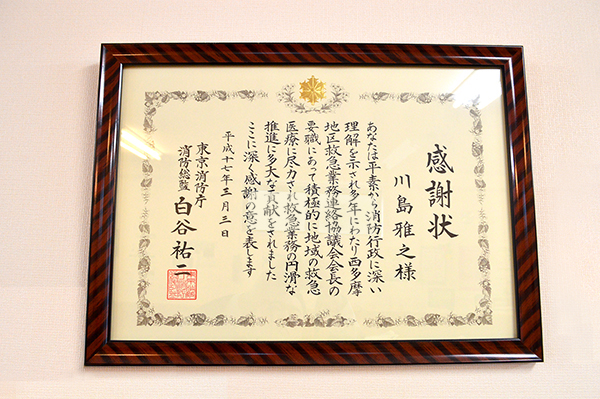 感謝状
川島雅之様
あなたは平素から消防行政に深い
理解を示され多年にわたり西多摩
地区救急業務連絡協議会会長の
要職にあって積極的に地域の救急
医療に尽力され救急業務の円滑な
推進に多大な貢献をされました
ここに深く感謝の意を表します
平成十七年三月三日
東京消防庁
消防総監 白谷祐二